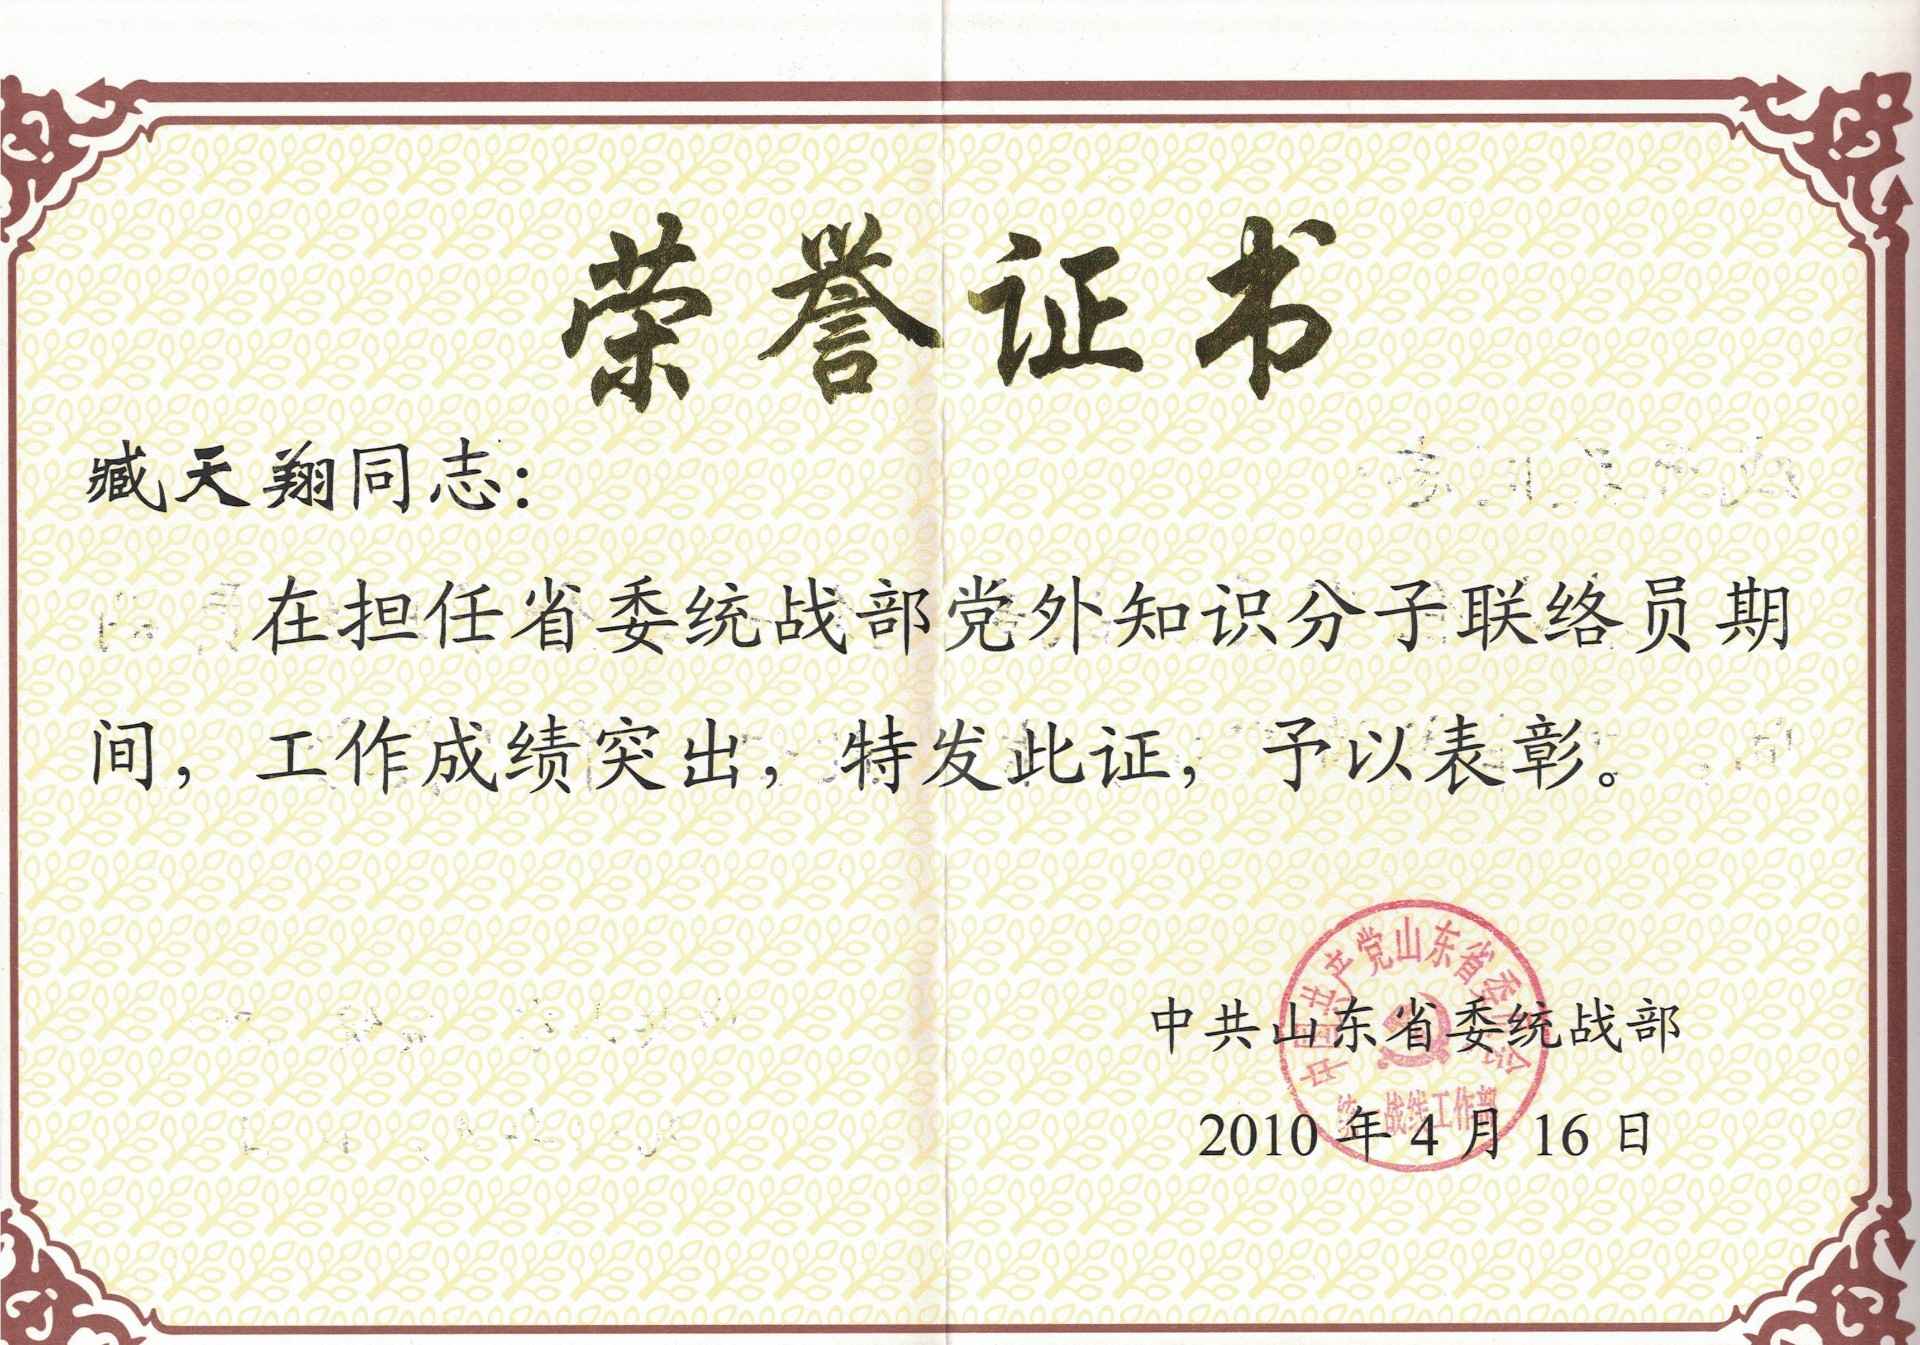 荣誉证书
臧天翔同志：
在担任省委统战部党外知识分子联络员期
间，工作成绩突出，特发此证，予以表彰。
中国共产党山东省委员会
统一战线工作部
中共山东省委统战部
2010年4月16日